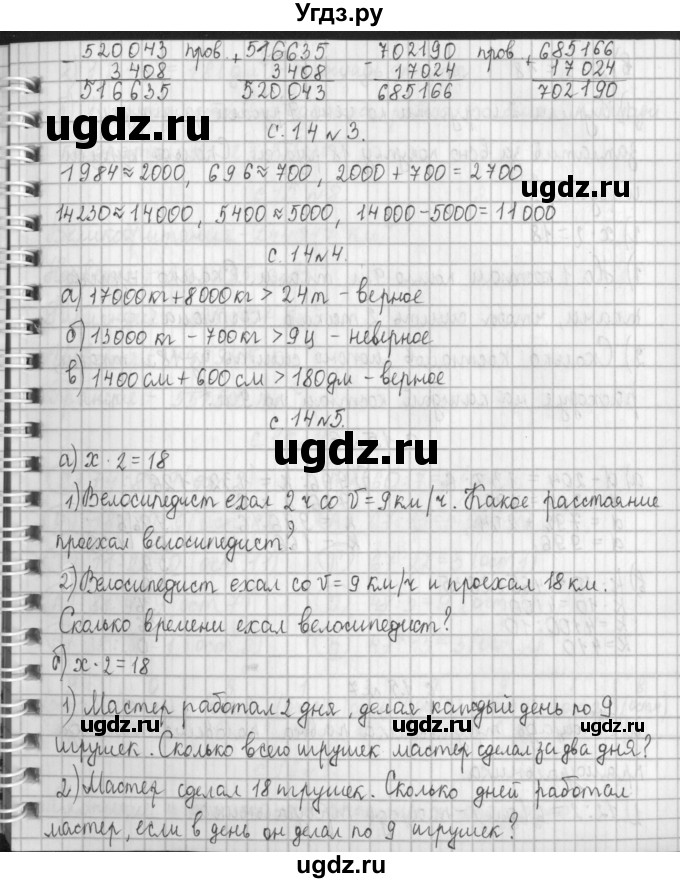 Угдз.ру
- 520043 пров. + 516635 - 702190 пров. + 685166
3408 3408 17024 17024
516635 520043 685166 702190
ugdz.ru ugdz.ru
с. 14 № 3.
1984 ≈ 2000, 696 ≈ 700, 2000 + 700 = 2700
ugdz.ru
14230 ≈ 14000, 5400 ≈ 5000, 14000 - 5000 = 11000
с. 14 № 4.
ugdz.ru
а) 17000 кг + 8000 кг > 24 т - верное
б) 13000 кг - 700 кг > 9 ц - неверное
в) 1400 см + 600 см > 180 дм - верное
ugdz.ru
с. 14 № 5.
ugdz.ru
а) x · 2 = 18
1) Велосипедист ехал 2 ч со v = 9 км/ч. Какое расстояние
проехал велосипедист?
ugdz.ru
2) Велосипедист ехал со v = 9 км/ч и проехал 18 км.
Сколько времени ехал велосипедист?
б) x · 2 = 18
ugdz.ru
1) Мастер работал 2 дня, делая каждый день по 9
ugdz.ru
игрушек. Сколько всего игрушек мастер сделал за два дня?
2) Мастер сделал 18 игрушек. Сколько дней работал
ugdz.ru
мастер, если в день он делал по 9 игрушек?
ugdz.ru